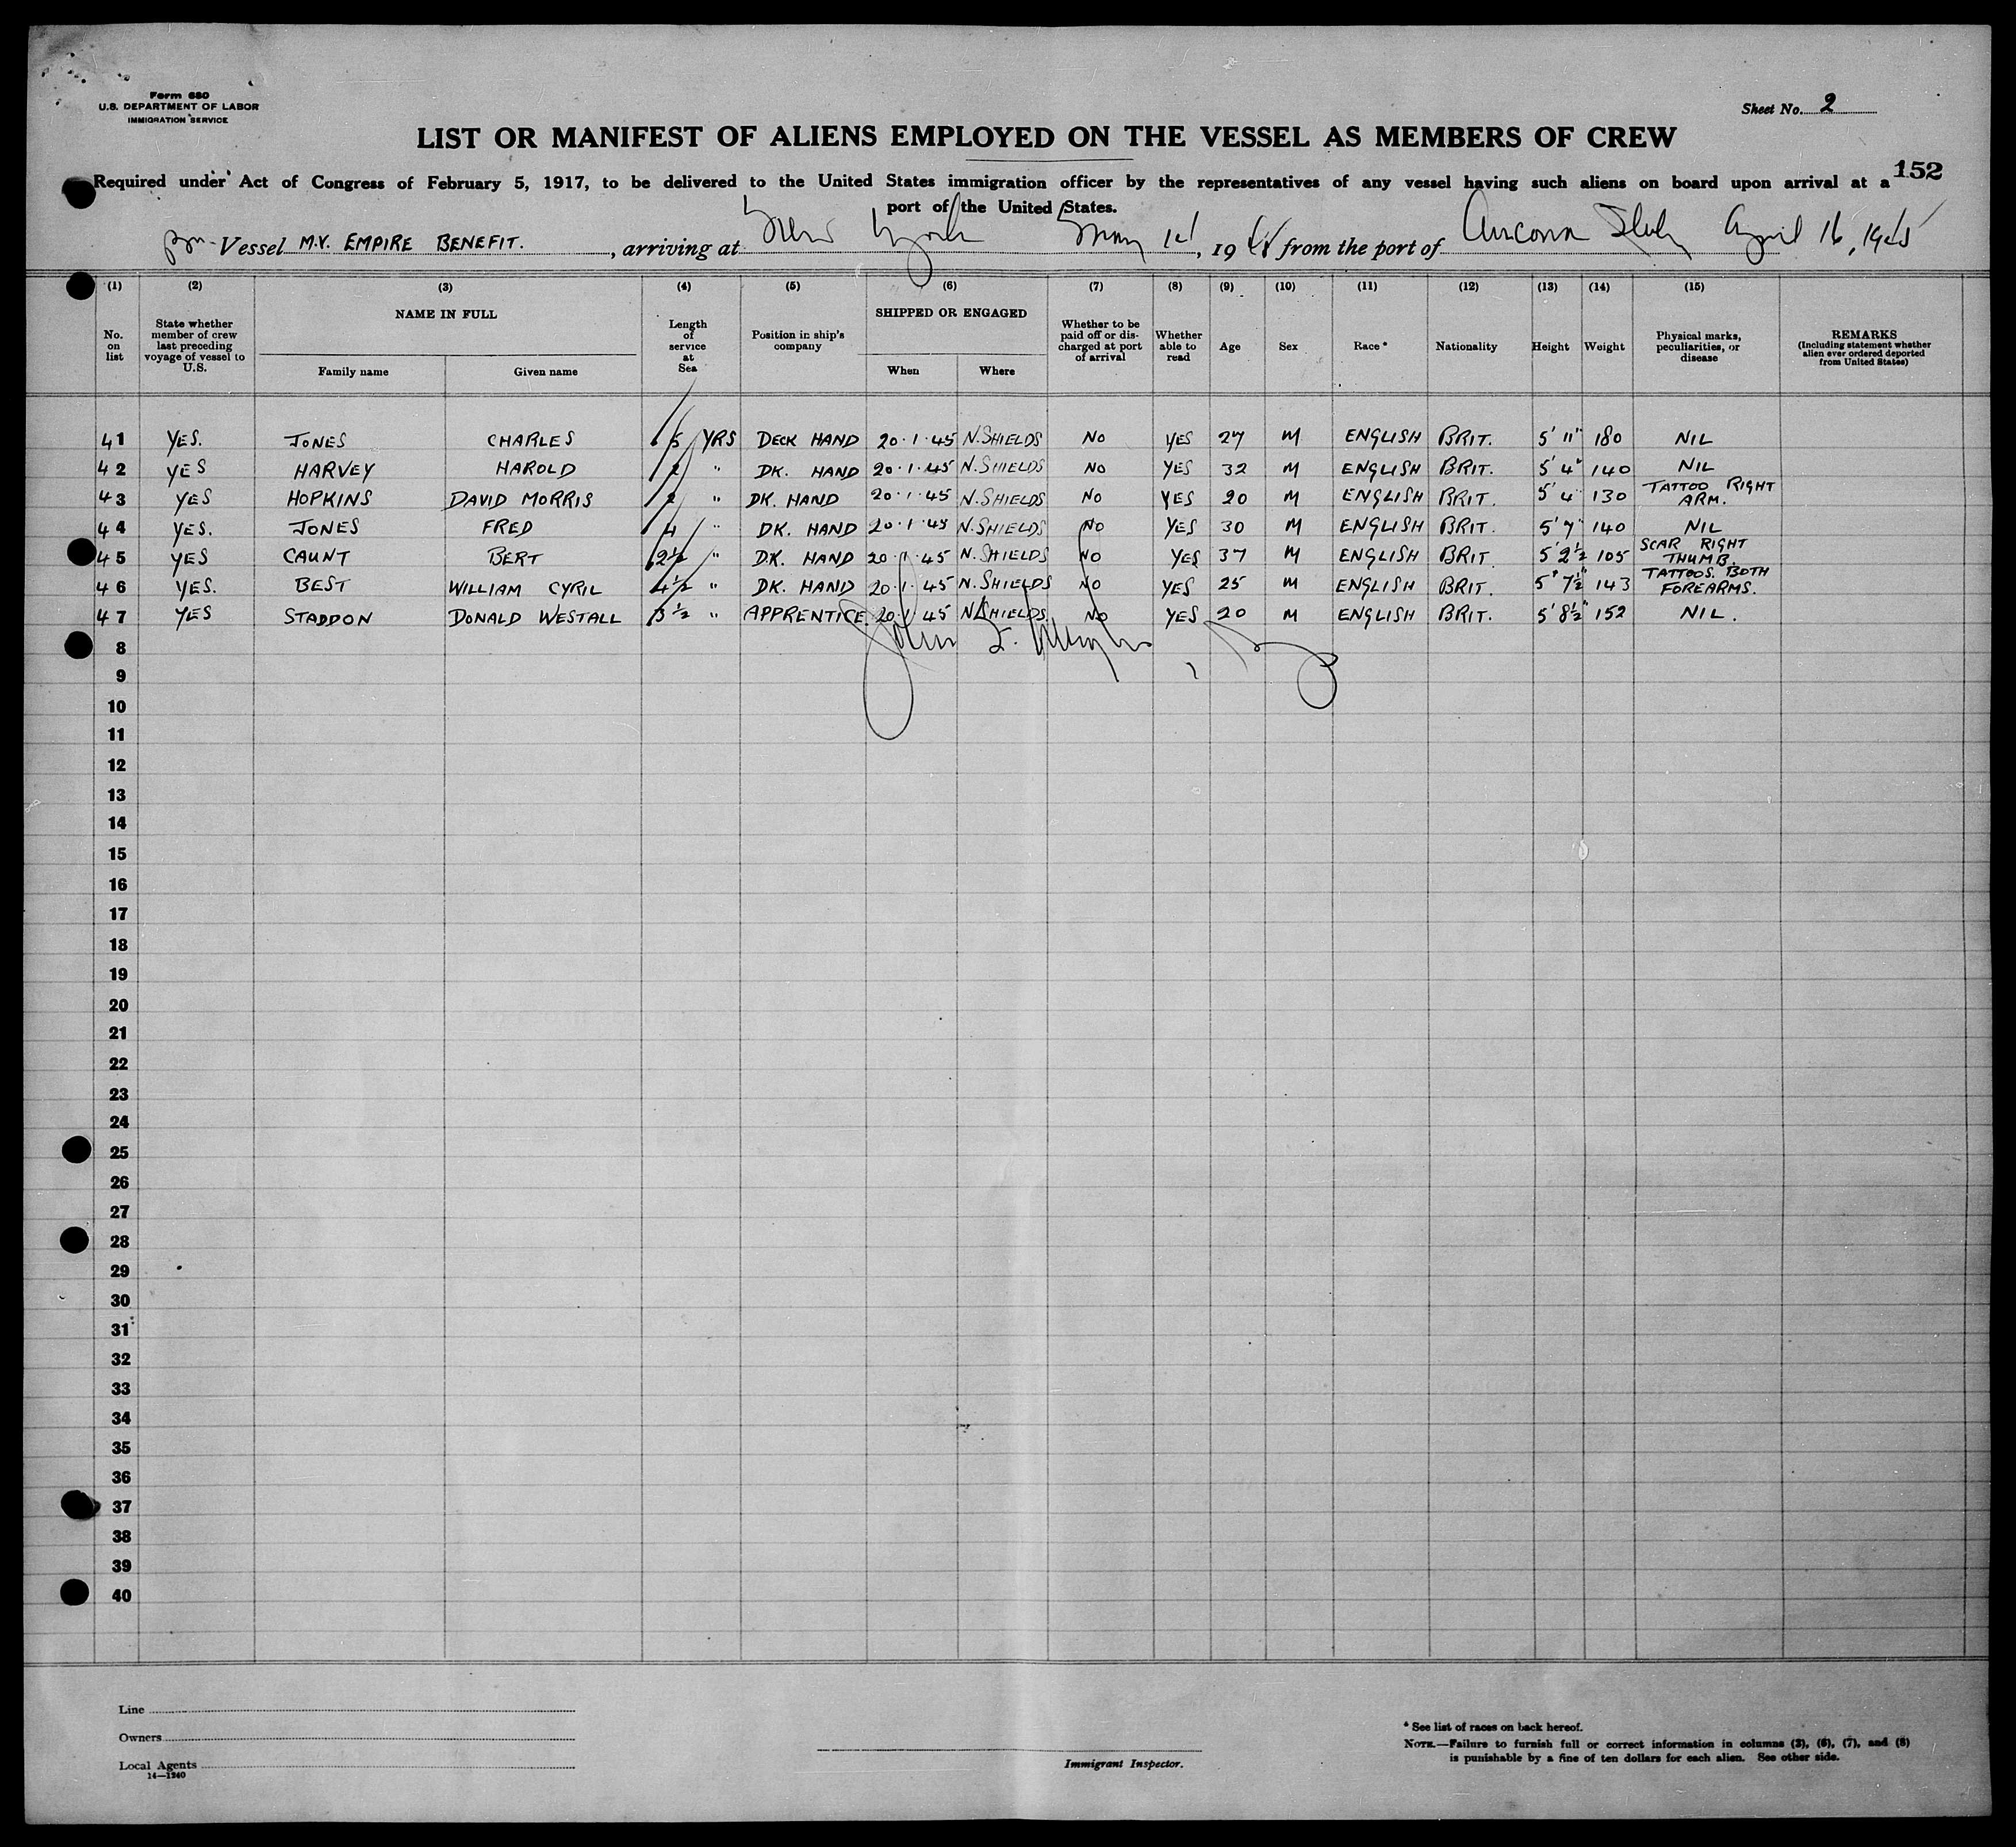 Form 680
U.S. DEPARTMENT OF LABOR
IMMIGRATION SERVICE
Sheet No. 2
LIST OR MANIFEST OF ALIENS EMPLOYED ON THE VESSEL AS MEMBERS OF CREW
152
Required under Act of Congress of February 5, 1917, to be delivered to the United States immigration officer by the representatives of any vessel having such aliens on board upon arrival at a
port of the United States.
Vessel M.V. EMPIRE BENEFIT. , arriving at New York May 1st , 19 45 from the port of Ancona Italy April 16, 1945
(1) (2) (3) (4) (5) (6) (7) (8) (9) (10) (11) (12) (13) (14) (15)
No. on list State whether member of crew last preceding voyage of vessel to U.S. NAME IN FULL Family name Given name Length of service at Sea Position in ship's company SHIPPED OR ENGAGED When Where Whether to be paid off or discharged at port of arrival Whether able to read Age Sex Race * Nationality Height Weight Physical marks, peculiarities, or disease REMARKS (Including statement whether alien ever ordered deported from United States)
41 YES. JONES CHARLES 5 YRS DECK HAND 20·1·45 N. SHIELDS NO YES 27 M ENGLISH BRIT. 5' 11" 180 NIL
42 YES HARVEY HAROLD 2 " DK. HAND 20·1·45 N. SHIELDS NO YES 32 M ENGLISH BRIT. 5' 4" 140 NIL
43 YES HOPKINS DAVID MORRIS 2 " DK. HAND 20·1·45 N. SHIELDS NO YES 20 M ENGLISH BRIT. 5' 4" 130 TATTOO RIGHT ARM.
44 YES. JONES FRED 4 " DK. HAND 20·1·45 N. SHIELDS NO YES 30 M ENGLISH BRIT. 5' 7" 140 NIL
45 YES CAUNT BERT 2½ " DK. HAND 20·1·45 N. SHIELDS NO YES 37 M ENGLISH BRIT. 5' 2½ 105 SCAR RIGHT THUMB.
46 YES. BEST WILLIAM CYRIL 4½ " DK. HAND 20·1·45 N. SHIELDS NO YES 25 M ENGLISH BRIT. 5" 7½" 143 TATTOOS. BOTH FOREARMS.
47 YES STADDON DONALD WESTALL 3½ " APPRENTICE. 20·1·45 N. SHIELDS. NO YES 20 M ENGLISH BRIT. 5' 8½" 152 NIL.
8 John
9
10
11
12
13
14
15
16
17
18
19
20
21
22
23
24
25
26
27
28
29
30
31
32
33
34
35
36
37
38
39
40
Line
Owners
Local Agents
14—1240
Immigrant Inspector.
* See list of races on back hereof.
NOTE.—Failure to furnish full or correct information in columns (3), (6), (7), and (8)
is punishable by a fine of ten dollars for each alien. See other side.